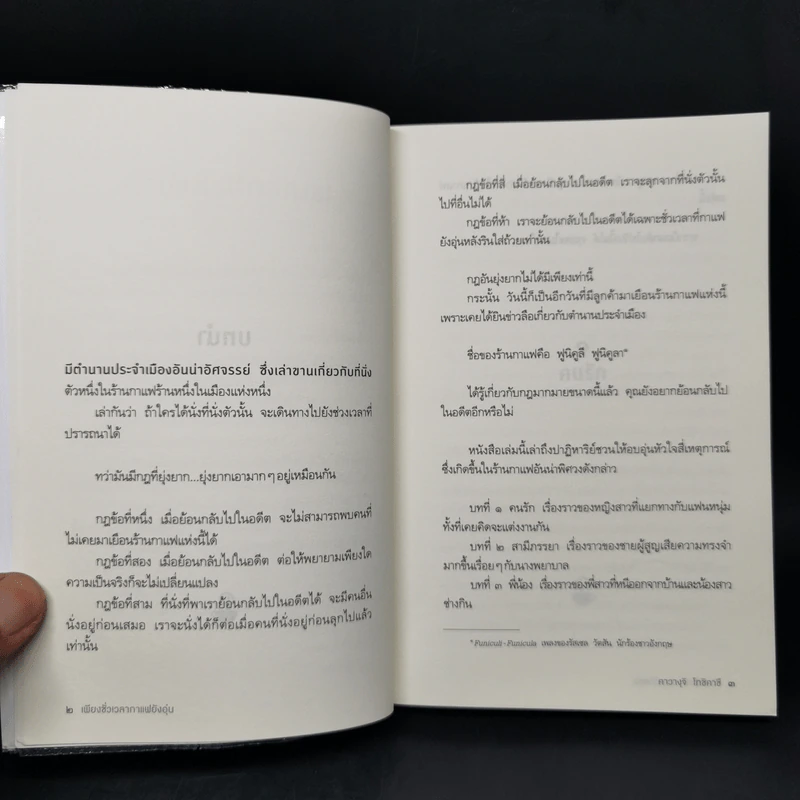 มีตำนานประจำเมืองอันน่าอัศจรรย์ ซึ่งเล่าขานเกี่ยวกับที่นั่ง
ตัวหนึ่งในร้านกาแฟร้านหนึ่งในเมืองแห่งหนึ่ง
เล่ากันว่า ถ้าใครได้นั่งที่นั่งตัวนั้น จะเดินทางไปยังช่วงเวลาที่
ปรารถนาได้
ทว่ามันมีกฎที่ยุ่งยาก...ยุ่งยากเอามากๆ อยู่เหมือนกัน
กฎข้อที่หนึ่ง เมื่อย้อนกลับไปในอดีต จะไม่สามารถพบคนที่
ไม่เคยมาเยือนร้านกาแฟแห่งนี้ได้
กฎข้อที่สอง เมื่อย้อนกลับไปในอดีต ต่อให้พยายามเพียงใด
ความเป็นจริงก็จะไม่เปลี่ยนแปลง
กฎข้อที่สาม ที่นั่งที่พาเราย้อนกลับไปในอดีตได้ จะมีคนอื่น
นั่งอยู่ก่อนเสมอ เราจะนั่งได้ก็ต่อเมื่อคนที่นั่งอยู่ก่อนลุกไปแล้ว
เท่านั้น
๒ เพียงชั่วเวลากาแฟยังอุ่น
กฎข้อที่สี่ เมื่อย้อนกลับไปในอดีต เราจะลุกจากที่นั่งตัวนั้น
ไปที่อื่นไม่ได้
กฎข้อที่ห้า เราจะย้อนกลับไปในอดีตได้เฉพาะชั่วเวลาที่กาแฟ
ยังอุ่นหลังรินใส่ถ้วยเท่านั้น
กฎอันยุ่งยากไม่ได้มีเพียงเท่านี้
กระนั้น วันนี้ก็เป็นอีกวันที่มีลูกค้ามาเยือนร้านกาแฟแห่งนี้
เพราะเคยได้ยินข่าวลือเกี่ยวกับตำนานประจำเมือง
ชื่อของร้านกาแฟคือ ฟูนิคูลี ฟูนิคูลา*
ได้รู้เกี่ยวกับกฎมากมายขนาดนี้แล้ว คุณยังอยากย้อนกลับไป
ในอดีตอีกหรือไม่
หนังสือเล่มนี้เล่าถึงปาฏิหาริย์ชวนให้อบอุ่นหัวใจสี่เหตุการณ์
ซึ่งเกิดขึ้นในร้านกาแฟอันน่าพิศวงดังกล่าว
บทที่ ๑ คนรัก เรื่องราวของหญิงสาวที่แยกทางกับแฟนหนุ่ม
ทั้งที่เคยคิดจะแต่งงานกัน
บทที่ ๒ สามีภรรยา เรื่องราวของชายผู้สูญเสียความทรงจำ
มากขึ้นเรื่อยๆ กับนางพยาบาล
บทที่ ๓ พี่น้อง เรื่องราวของพี่สาวที่หนีออกจากบ้านและน้องสาว
ช่างกิน
* Funiculi - Funicula เพลงของรัสเซล วัตสัน นักร้องชาวอังกฤษ
คาวางุจิ โทชิคาซึ ๓